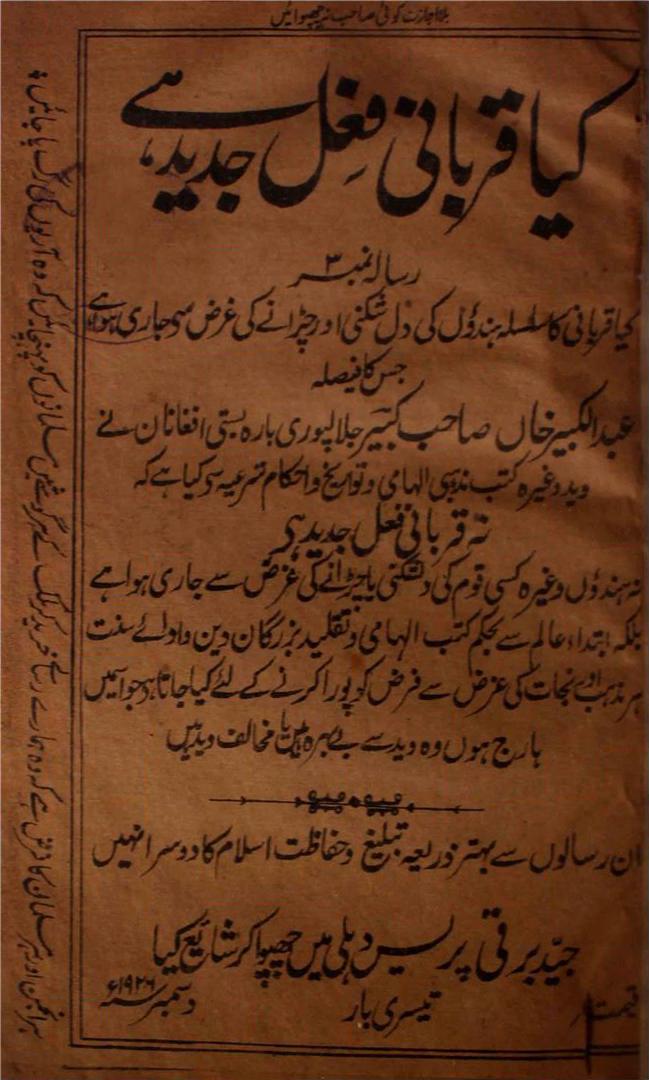 بلا اجازت کوئی صاحب نہ چھپوائیں
کیا قربانی فعل جدید ہے
رسالہ نمبر ۳
کیا قربانی کا سلسلہ ہندوُں کی دل شکنی اور چڑانے کی غرض سی جاری ہوا ہے
جس کا فیصلہ
عبد الکبیر خاں صاحب کبیر جلالپوری بارہ بستی افغانان نے
وید وغیرہ کتب مذہبی الہامی و تواریخ و احکام شرعیہ سی کیا ہے کہ
نہ قربانی فعل جدید ہی
نہ ہندوُں وغیرہ کسی قوم کی دلشکنی یا چڑانے کی غرض سے جاری ہوا ہے
بلکہ ابتداء عالم سے بحکم کتب الہامی و تقلید بزرگان دین و ادائے سنت
ہر مذہب اور نجات کی غرض سے فرض کو پورا کرنے کے لئے کیا جاتا ہے جو اسمیں
ہارج ہوں وہ وید سے بے بہرہ ہیں یا مخالف وید ہیں
ان رسالوں سے بہتر ذریعہ تبلیغ و حفاظت اسلام کا دوسرا نہیں
جیّد برقی پریس دہلی میں چھپوا کر شایع کیا
قیمت
تیسری بار
دسمبر ۱۹۲۶ء
ہر انجمن اور ہر مسلمان کا فرض ہے کہ وہ ہمارے رسالے خرید کر ملک کے ہر گوشے میں مسلمانوں کو پہنچائیں کہ وہ آریوں کی